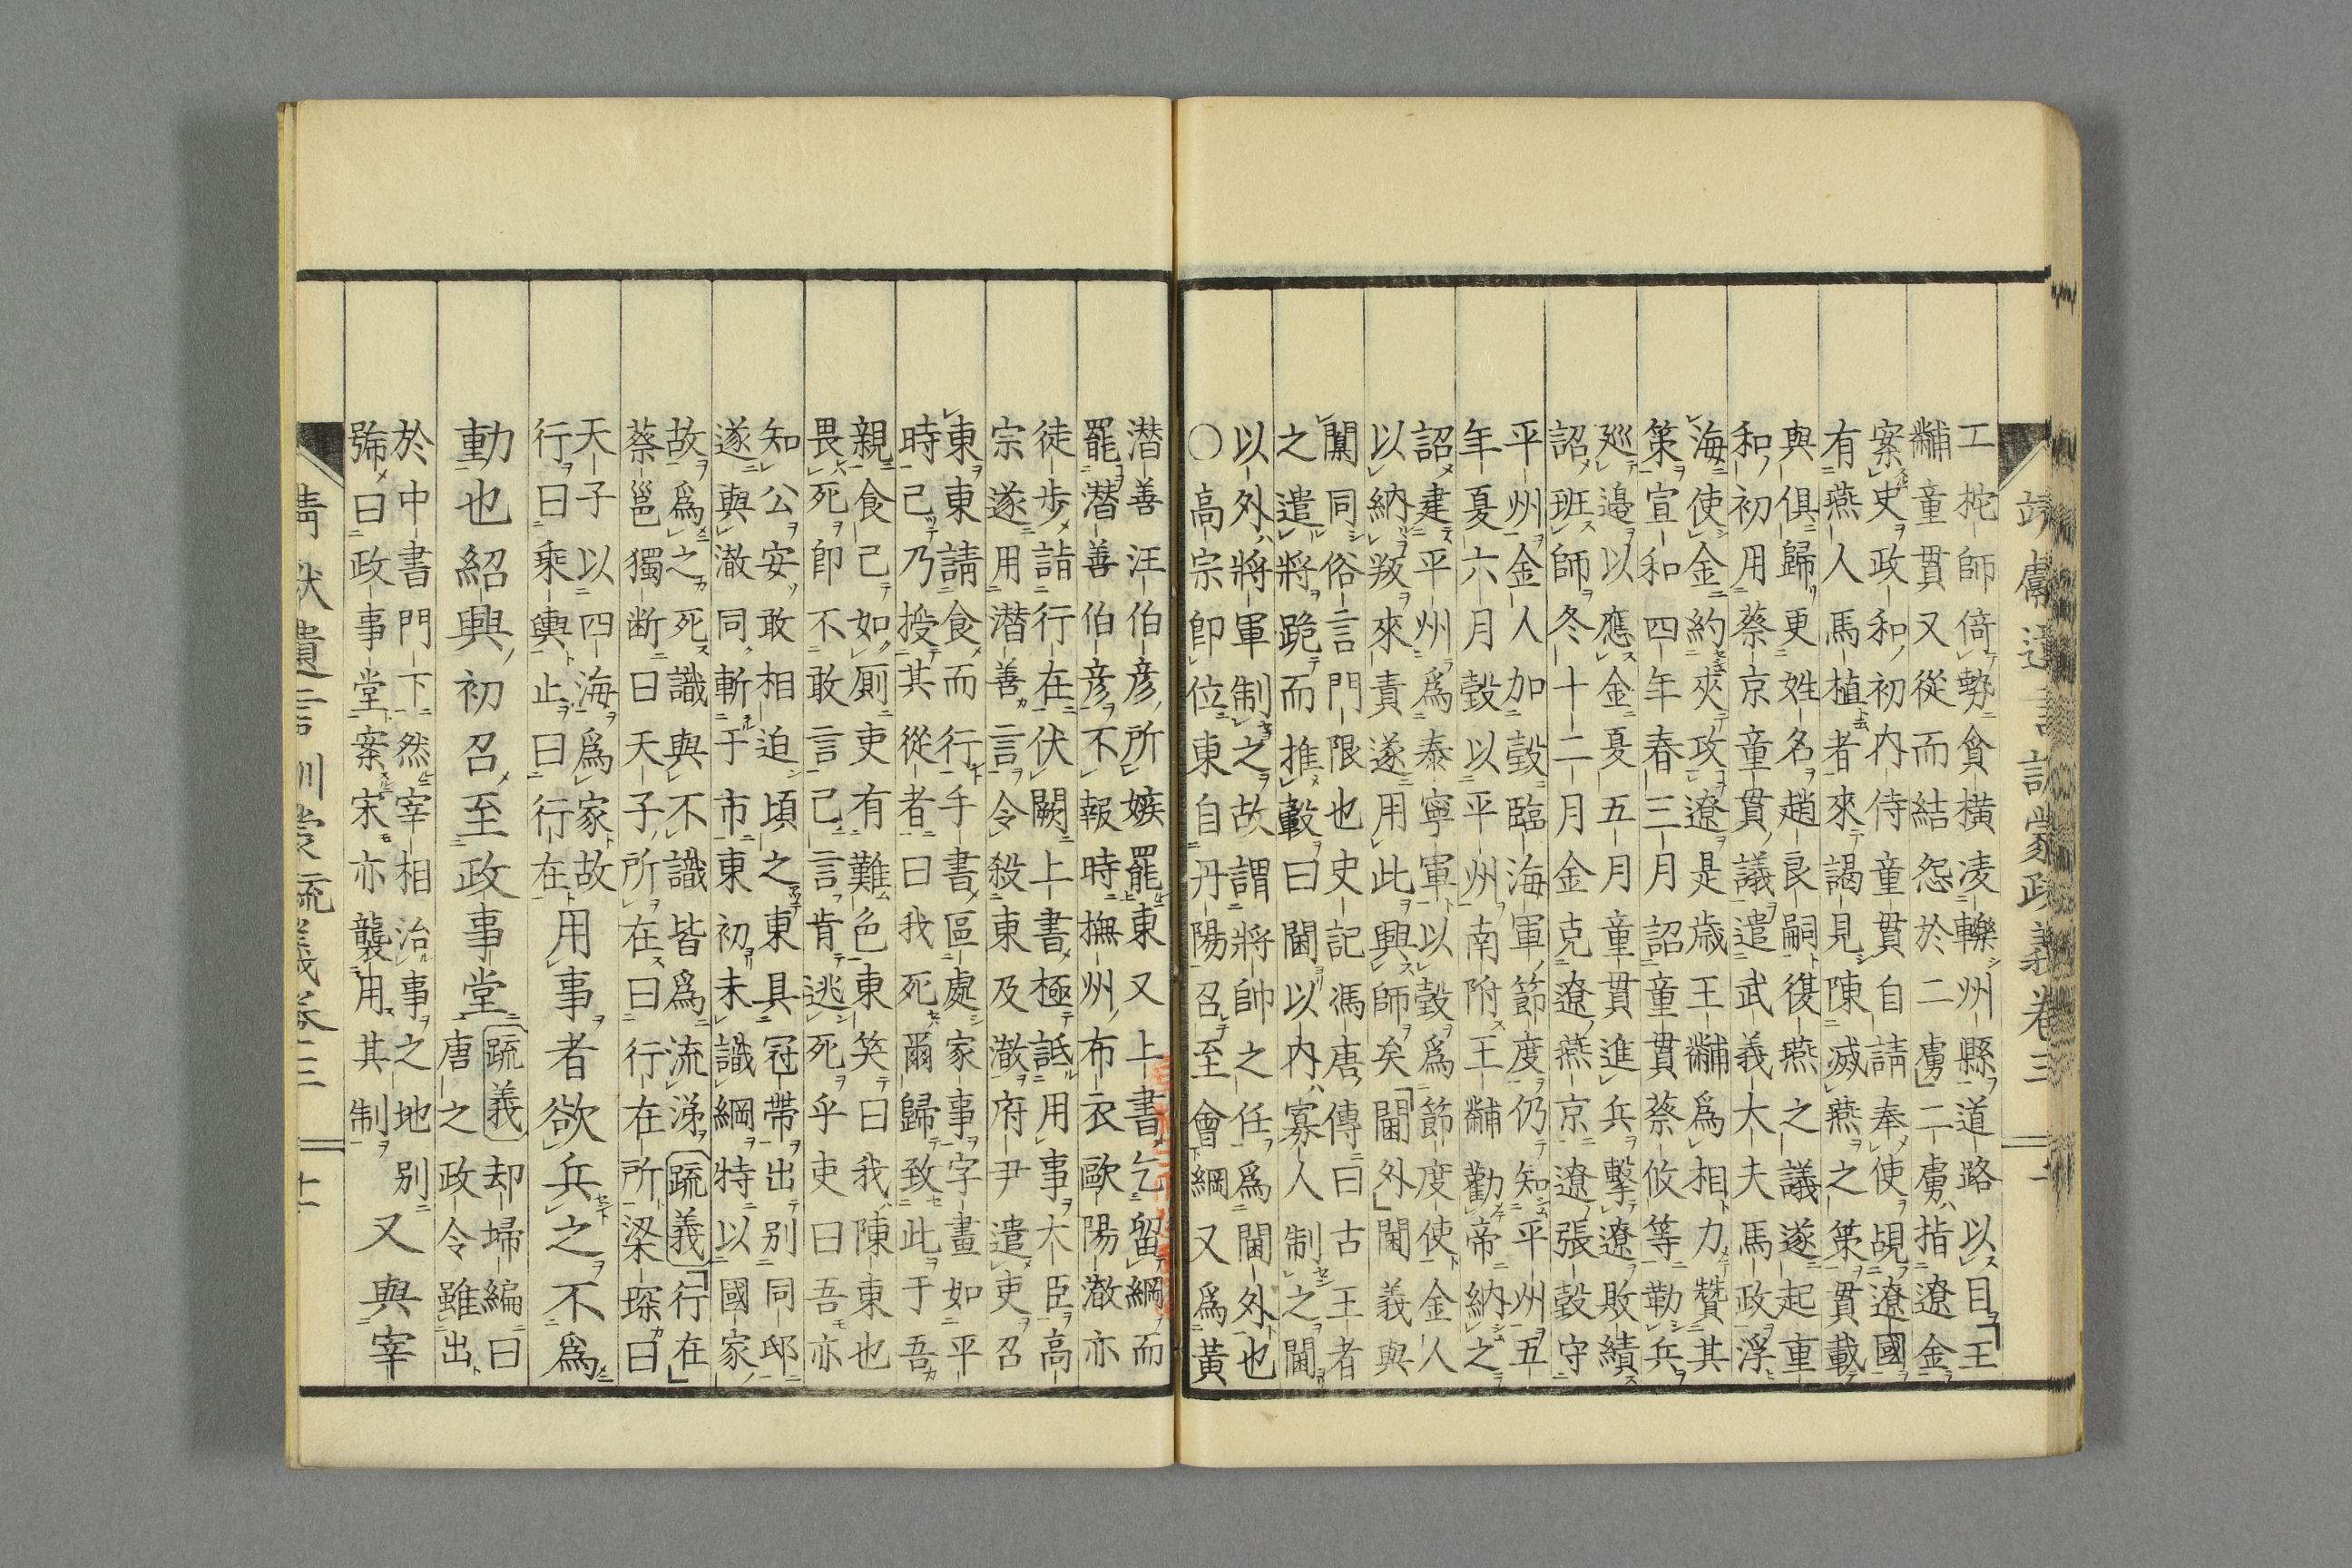 工挓師倚勢貪横凌轢州縣道路以目王
黼童貫又從而結怨於二虜二虜指遼金
案史政和初内侍童貫自請奉使覘遼國
有燕人馬植者來謁見陳滅燕之策貫載
與俱歸更姓名趙良嗣復燕之議遂起重
和初用蔡京童貫議遣武義大夫馬政浮
海使金約夾攻遼是歳王黼爲相力贊其
策宣和四年春三月詔童貫蔡攸等勒兵
廵邉以應金夏五月童貫進兵擊遼敗績
詔班師冬十二月金克遼燕京遼張瑴守
平州金人加瑴臨海軍節度仍知平州五
年夏六月瑴以平州南附王黼勸帝納之
詔建平州爲泰寧軍以瑴爲節度使金人
以納叛來責遂用此興師矣閫外閫義與
闑同俗言門限也史記馮唐傳曰古王者
之遣將跪而推轂曰閫以内寡人制之閫
以外將軍制之故謂將帥之任爲閫外也
○高宗卽位東自丹陽召至會綱又爲黃
潜善汪伯彦所嫉罷東又上書乞留綱而
罷潜善伯彦不報時撫州布衣歐陽澈亦
徒歩詣行在伏闕上書極詆用事大臣高
宗遂用潜善言令殺東及澈府尹遣吏召
東東請食而行手書區處家事字畫如平
時已乃授其從者曰我死爾歸致此于吾
親食已如厠吏有難色東笑曰我陳東也
畏死卽不敢言已言肯逃死乎吏曰吾亦
知公安敢相迫頃之東具冠帶出别同邸
遂與澈同斬于市東初未識綱特以國家
故爲之死識與不識皆爲流涕疏義行在
蔡邕獨断曰天子所在曰行在所梁琛曰
天子以四海爲家故
行曰乘輿止曰行在
用事者欲兵之不爲
動也紹興初召至政事堂疏義却埽編曰
唐之政令雖出
於中書門下然宰相治事之地别
號曰政事堂案宋亦襲用其制
又與宰